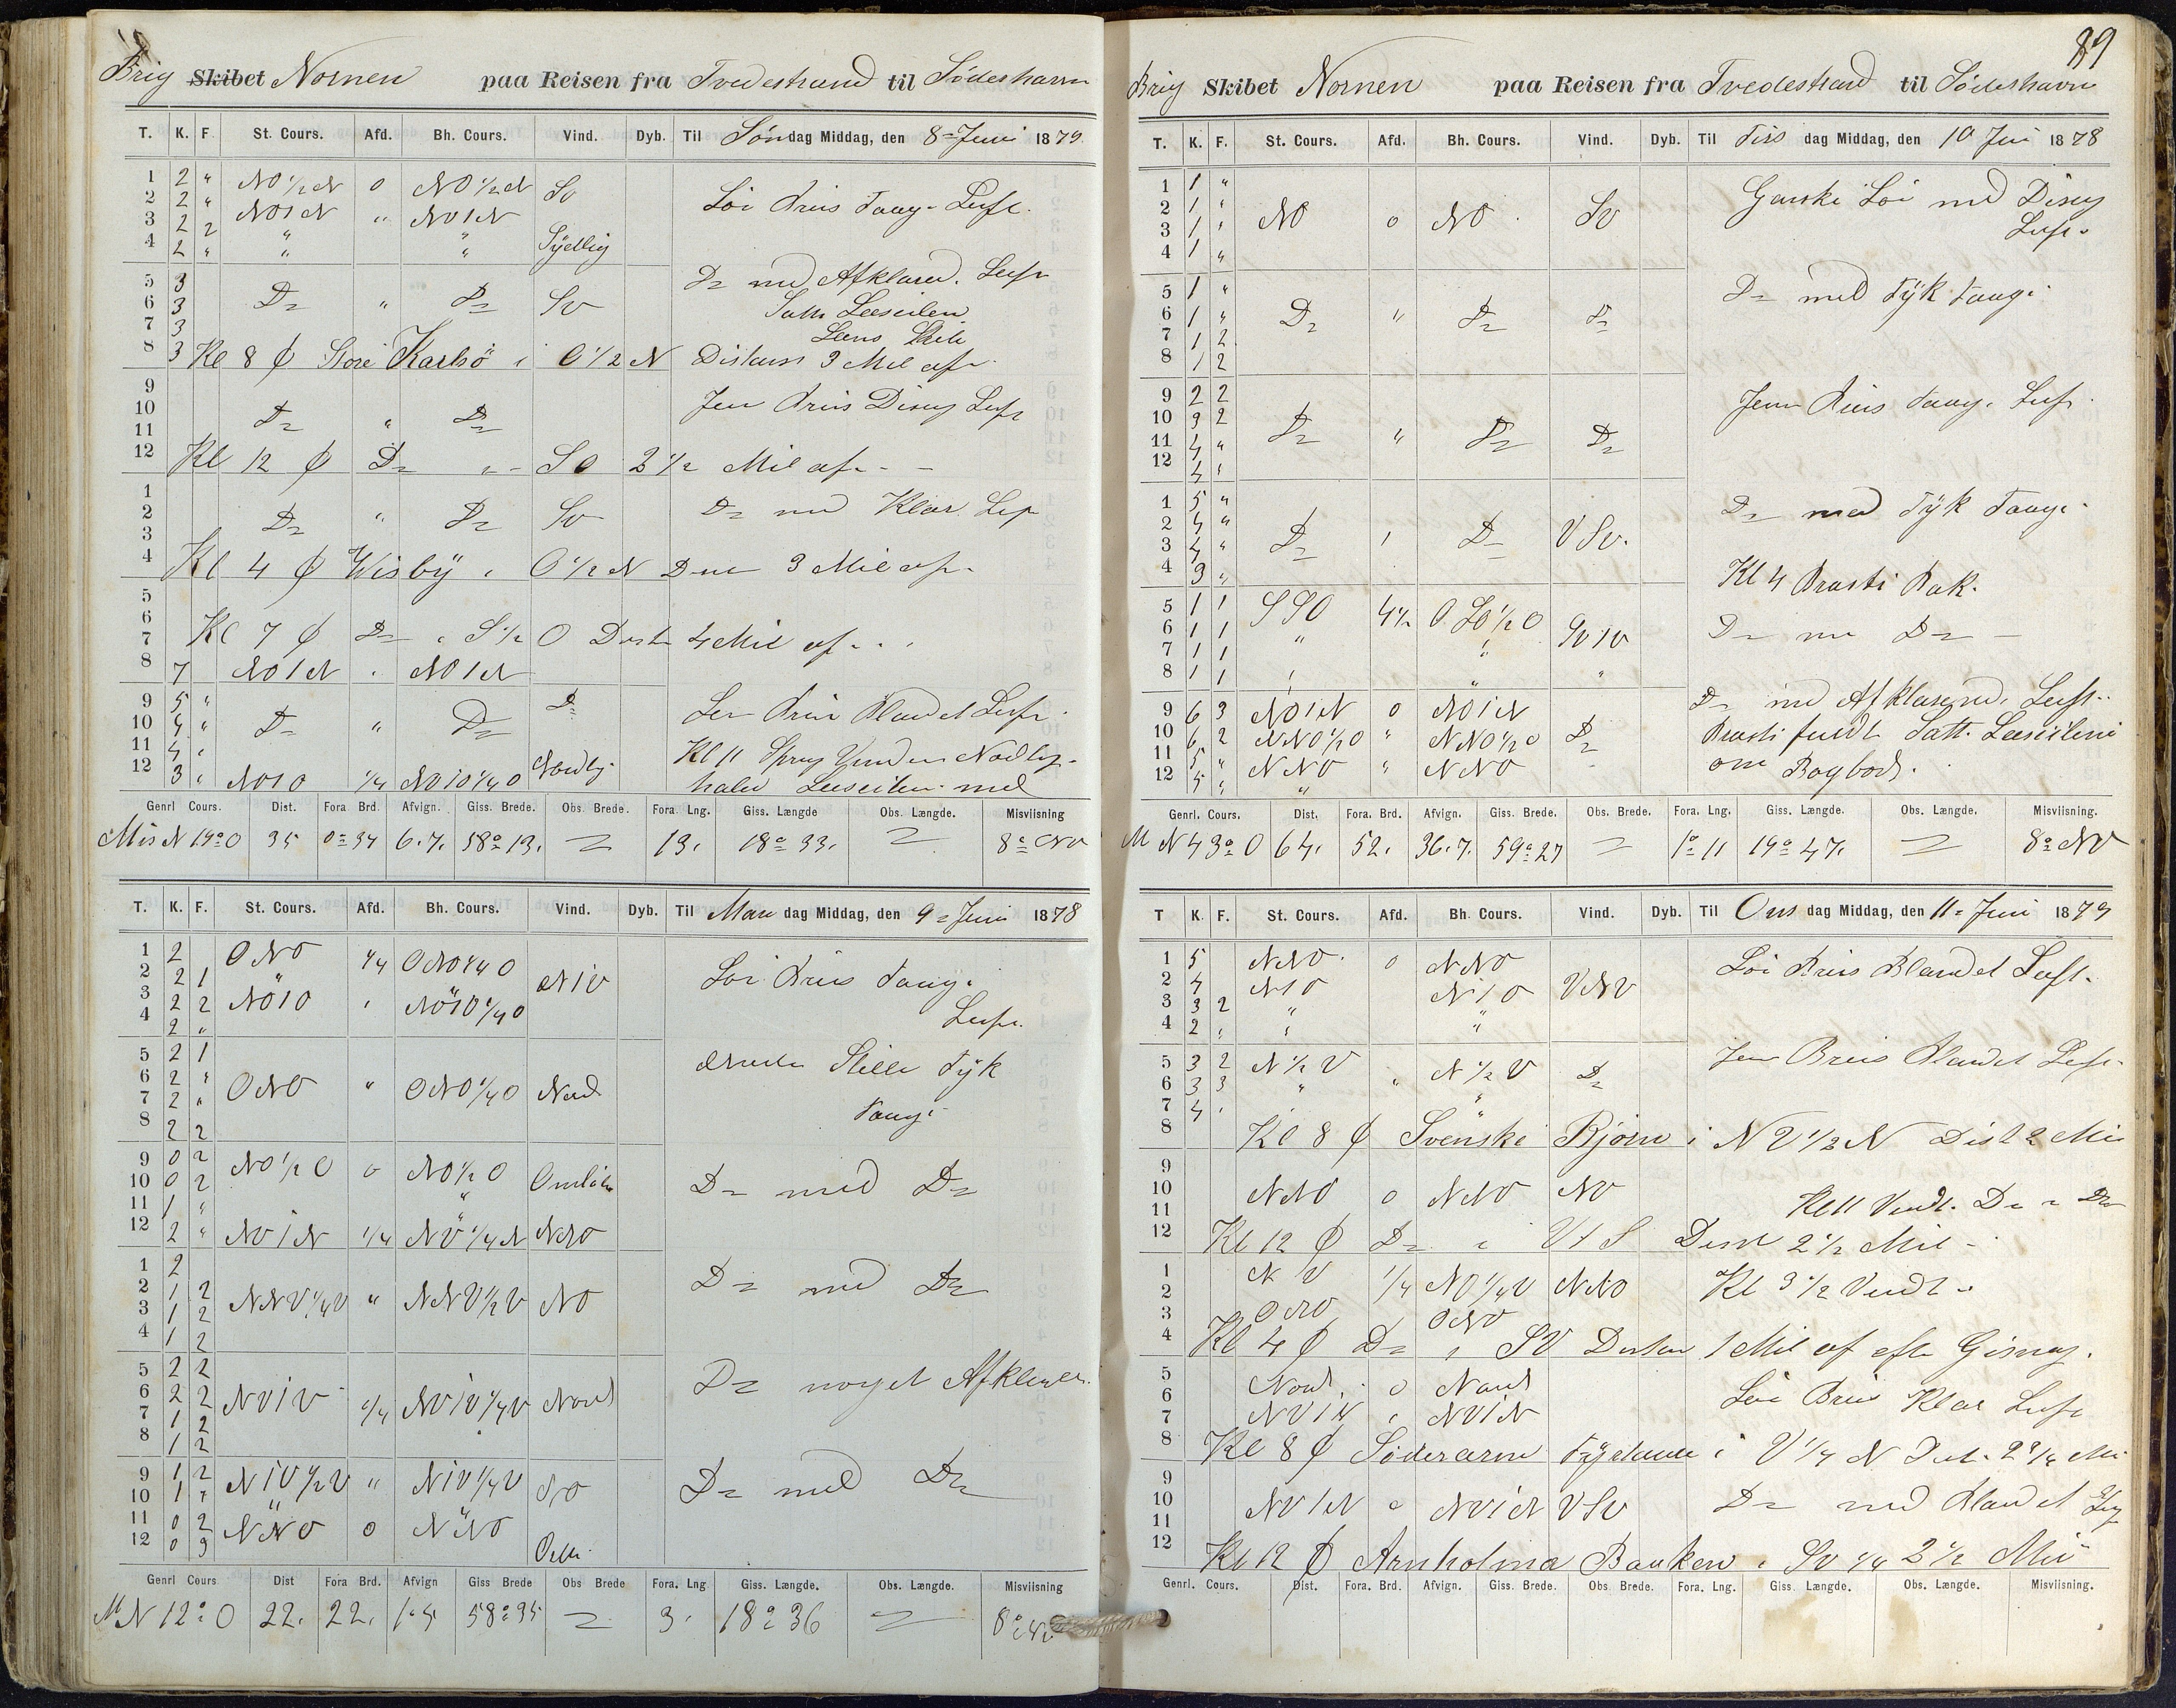 Brig Skibet Nornen paa Reisen fra Tvedestrand til Söderhavn
T. K. F. St. Cours. Afd. Bh. Cours. Vind. Dyb. Til Söndag Middag, den 8= Juni 1879
1 2 " NO 1/2 N 0 NO 1/2 N Sv
2 2 " NO1N " NO1N
3 2 2 " "
4 2 " " " Sydlig
Löi Briis Taag= Luft.
5 3
6 3 D= " D= Sv
7 3
8 3 Kl 8 ₵ Store Karlsö i O 1/2 N Distans 3 Mil af
D= med Afklared. Luft
Satte Leeseilen
9
10 D= " D=
11
12 Kl 12 ₵ D= " SO 2 1/2 Mil af
Jevn Briis Diseg Luft
1
2 D= " D= Sv
3
4 Kl 4 ₵ Wisby i O 1/2 N 3 Mil af
D= med Klar Luft
5
6
7 Kl 7 ₵ D= i S 1/2 O Dist 4 Mil af
8 7 NO1N " NO1N
9 5 " D=
10 4 " D= " D=
11 4 "
12 3 " NO1O 1/4 NO1O 1/4 O Nordlig
Briis Blandet Luft
Kl 11 Sprang Vinden Nordlig
halede Leeseilen ned
Genrl Cours. Dist. Fora Brd. Afvign. Giss. Brede. Obs. Brede. Fora. Lng. Giss. Længde Obs. Længde. Misviisning
Mis N 19° O 35 0= 34 6.7. 58° 13. = 13. 18° 33. = 8° NV
T. K. F. St. Cours. Afd. Bh. Cours. Vind. Dyb. Til Man dag Middag, den 9= Juni 1878
1 2 ONO 1/4 ONO 1/4 O
2 2 1 " N1V
3 2 2 NO1O " NO1O 1/4 O
4 2 "
Löi Briis Taag.
Luft.
5 2 1
6 2 " ONO " ONO 1/4 O Nord
7 2 "
8 2 2
Stille Tyk
Taage
9 0 2 NO 1/2 O 0 NO 1/2 O Omlöb
10 0 2 "
11 1 " "
12 2 " NV1N 1/4 NV 1/4 N NNO
D= med D=
1 2
2 1 2 NNV 1/4 V " NNV 1/2 V NO
3 1 2
4 1 2
D= med D=
5 2 2
6 2 2 NV1V 1/4 NV1V 1/4 V Nord
7 1 2
8 1 2
D= noget Afklaret.
9 1 2 N1V 1/2 V " N1V 1/4 V
10 1 " "
11 0 2 NNO 0 NNO
12 0 3
D= med D=
Genrl Cours Dist Fora Brd. Afvign Giss Brede Obs Brede Fora. Lng Giss. Længde. Obs. Længde. Misviisning
M N 12° O 22. 22. 58° 35 = 3. 18° 36 = 8°
89
Brig Skibet Nornen paa Reisen fra Tvedestrand til Söderhavn
T. K. F. St. Cours. Afd. Bh. Cours. Vind. Dyb. Til Tirs dag Middag, den 10 Juni 1878
1 1 "
2 1 " NO 0 NO Sv
3 1 "
4 1 "
Ganske Löi med Diseg
Luft.
5 1 "
6 1 " D= " D= D=
7 1 2
8 1 2
D= med Tyk Taage
9 2 2
10 3 2 D= " D= D=
11 4 "
12 4 "
Jevn Briis Taag. Luft.
1 5 "
2 4 " D= " D= VSv.
3 4 "
4 3 "
D= med Tyk Taage.
Kl 4 Brasti Bak.
5 1 1 SSO
6 1 1 " "
7 1 1
8 1 1 " " "
D= D=
9 6 3 NO1N 0 NO1N
10 6 2 NNO 1/2 O " NNO 1/2 O D=
11 5 " NNO " NNO
12 5 " "
D= med Afklarende Luft.
Brasti fuldt Satt. Leeseileni
om Bagbord.
Genrl. Cours. Dist. Fora. Brd. Afvign. Giss. Brede. Obs. Brede. Fora. Lng. Giss. Længde. Obs. Længde. Misviisning.
M N 43° O 64. 52. 36.7. 59° 27 = 1° 11 19° 47. = 8° NV
T K. F. St. Cours. Afd. Bh. Cours. Vind. Dyb. Til Ons dag Middag, den 11= Juni 1879
1 5 NNO 0 NNO
2 4 N1O N1O VNV
3 3 2 " "
4 2 " " "
Löi Briis Blandet Luft.
5 3 2 N 1/2 V " N 1/2 V D=
6 3 3 " "
7 4 "
8 Kl 8 ₵ Svenske Björn i NV 1/2 N Dist 2 Mil
Jevn Briis Blandet Luft
9
10 NNO 0 NNO NV
11 Kl 11 Vendt. D= D=
12 Kl 12 ₵ D= i V t S Dist 2 1/2 Mil
1 N V 1/4 NNO Kl 3 1/2 Vendt
2
3 ONO ONO
4 Kl 4 ₵ D= i SV 1 Mil af efter Gisning.
5 Nord 0 Nord
6
7 NV1N " NV1N
Löi Briis Klar Luft
8 Kl 8 ₵ Söderarm Fyrtaarn i V 1/4 N Dist. 2 3/4 Mil
9
10 NV1N " NV1N VSv
11
D= med Blandet
12 Kl 12 ₵ Arnholma Banken i Sv 1/4 2 1/2 Mil
Genrl. Cours. Dist. Fora. Brd. Afvign. Giss. Brede. Obs. Brede. Fora. Lng. Giss. Længde. Obs. Længde. Misviisning.